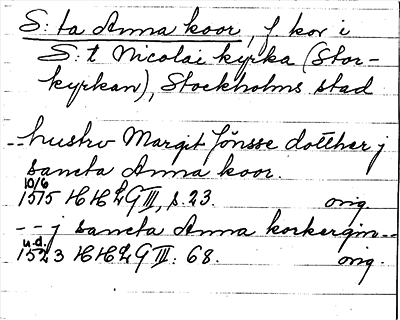 S:ta Anna koor, f kor i
S:t Nicolai kyrka (Stor-
kyrkan), Stockholms stad
-- hustrv Margit Jönsse dotther j
sancta Anna koor.
10/6
1515 HHLG III, s. 23. orig.
-- j sancta Anna korkergin --
u.d.
1523 HHLG III: 68. orig.